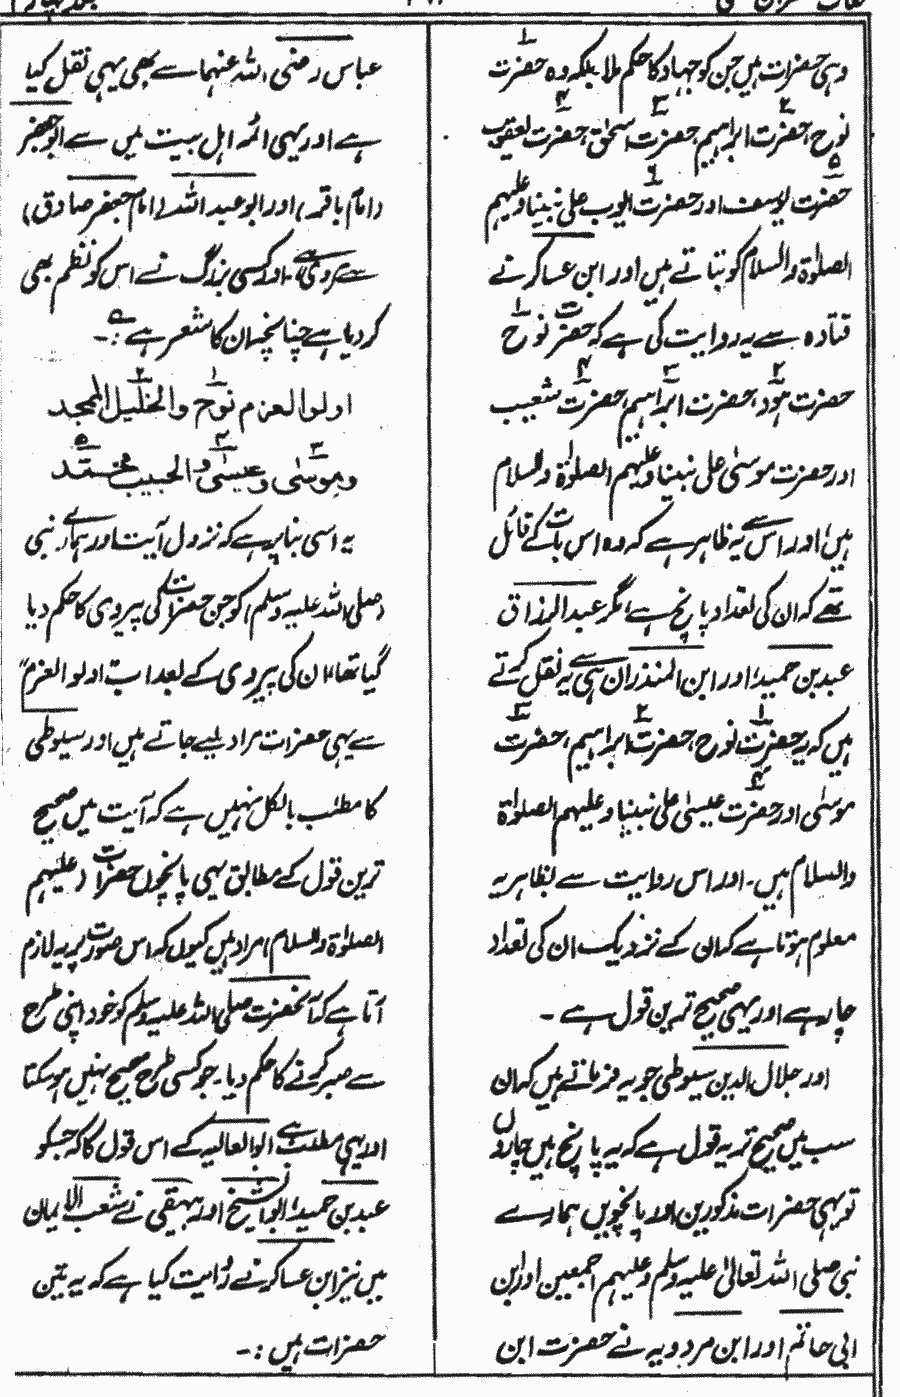 وہی حضرات ہیں جن کو جہاد کا حکم ملا بلکہ وہ حضرت
نوح، حضرت ابراہیم، حضرت اسحٰق، حضرت یعقوب
حضرت یوسف اور حضرت ایوب علیٰ نبینا و علیہم
الصلوٰة والسلام کو بتاتے ہیں اور ابن عساکر نے
قتادہ سے یہ روایت کی ہے کہ حضرت نوح
حضرت ہود، حضرت ابراہیم، حضرت شعیب
اور حضرت موسیٰ علی نبینا و علیہم الصلوٰة والسلام
ہیں اور اس سے یہ ظاہر ہے کہ وہ اس بات کے قائل
تھے کہ ان کی تعداد پانچ ہے، مگر عبدالرزاق
عبد بن حمید، اور ابن المنذر ان ہی سے یہ نقل کرتے
ہیں کہ یہ حضرت نوح، حضرت ابراہیم، حضرت
موسٰی اور حضرت عیسیٰ علی نبینا و علیہم الصلوٰة
والسلام ہیں۔ اور اس روایت سے بظاہر یہ
معلوم ہوتا ہے کہ ان کے نزدیک ان کی تعداد
چار ہے اور یہی صحیح ترین قول ہے۔
اور جلال الدین سیوطی جو یہ فرماتے ہیں کہ ان
سب میں صحیح تر یہ قول ہے کہ یہ پانچ ہیں چاروں
تو یہی حضرات مذکورین اور پانچویں ہمارے
نبی صلی اللہ تعالیٰ علیہ وسلم و علیہم اجمعین اور ابن
ابی حاتم اور ابن مردویہ نے حضرت ابن
عباس رضی اللہ عنہما سے بھی یہی نقل کیا
ہے اور یہی ائمہ اہل بیت میں سے ابو جعفر
(امام باقر) اور ابو عبد اللہ (امام جعفر صادق)
سے مروی ہے۔ اور کسی بزرگ نے اس کو نظم بھی
کر دیا ہے چنانچہ ان کا شعر ہے :۔
اولوا العزم نوح والخلیل الممجد
وموسٰی وعیسٰی والحبیب محمّد
یہ اسی بنا پر ہے کہ نزول آیت اور ہمارے نبی
(صلی اللہ علیہ وسلم) کو جن حضرات کی پیروی کا حکم دیا
گیا تھا ان کی پیروی کے بعد اب اولو العزم"
سے یہی حضرات مراد لیے جاتے ہیں اور سیوطی
کا مطلب بالکل نہیں ہے کہ آیت میں صحیح
ترین قول کے مطابق یہی پانچوں حضرات (علیہم
الصلوٰة والسلام) مراد ہیں کیوں کہ اس صورت پر یہ لازم
آتا ہے کہ آنحضرت صلی اللہ علیہ وسلم کو خود اپنی طرح
سے صبر کرنے کا حکم دیا۔ جو کسی طرح صحیح نہیں ہو سکتا
اور یہی مطلب ہے ابو العالیہ کے اس قول کا کہ جس کو
عبد بن حمید، ابو الشیخ اور بیہقی نے شعب الایمان
میں نیز ابن عساکر نے روایت کیا ہے کہ یہ تین
حضرات ہیں :۔